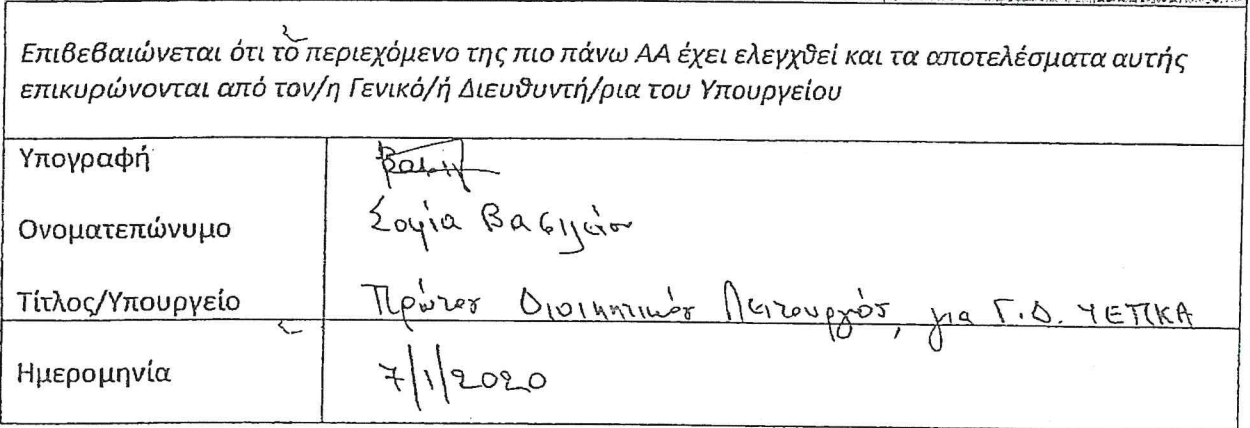 Επιβεβαιώνεται ότι το περιεχόμενο της πιο πάνω ΑΑ έχει ελεγχθεί και τα αποτελέσματα αυτής
επικυρώνονται από τον/η Γενικό/ή Διευθυντή/ρια του Υπουργείου
Υπογραφή
Ονοματεπώνυμο Σοφία Βασιλείου
Τίτλος/Υπουργείο Πρώτος Διοικητικός Λειτουργός, για Γ.Δ. ΥΕΠΚΑ
Ημερομηνία 7/1/2020